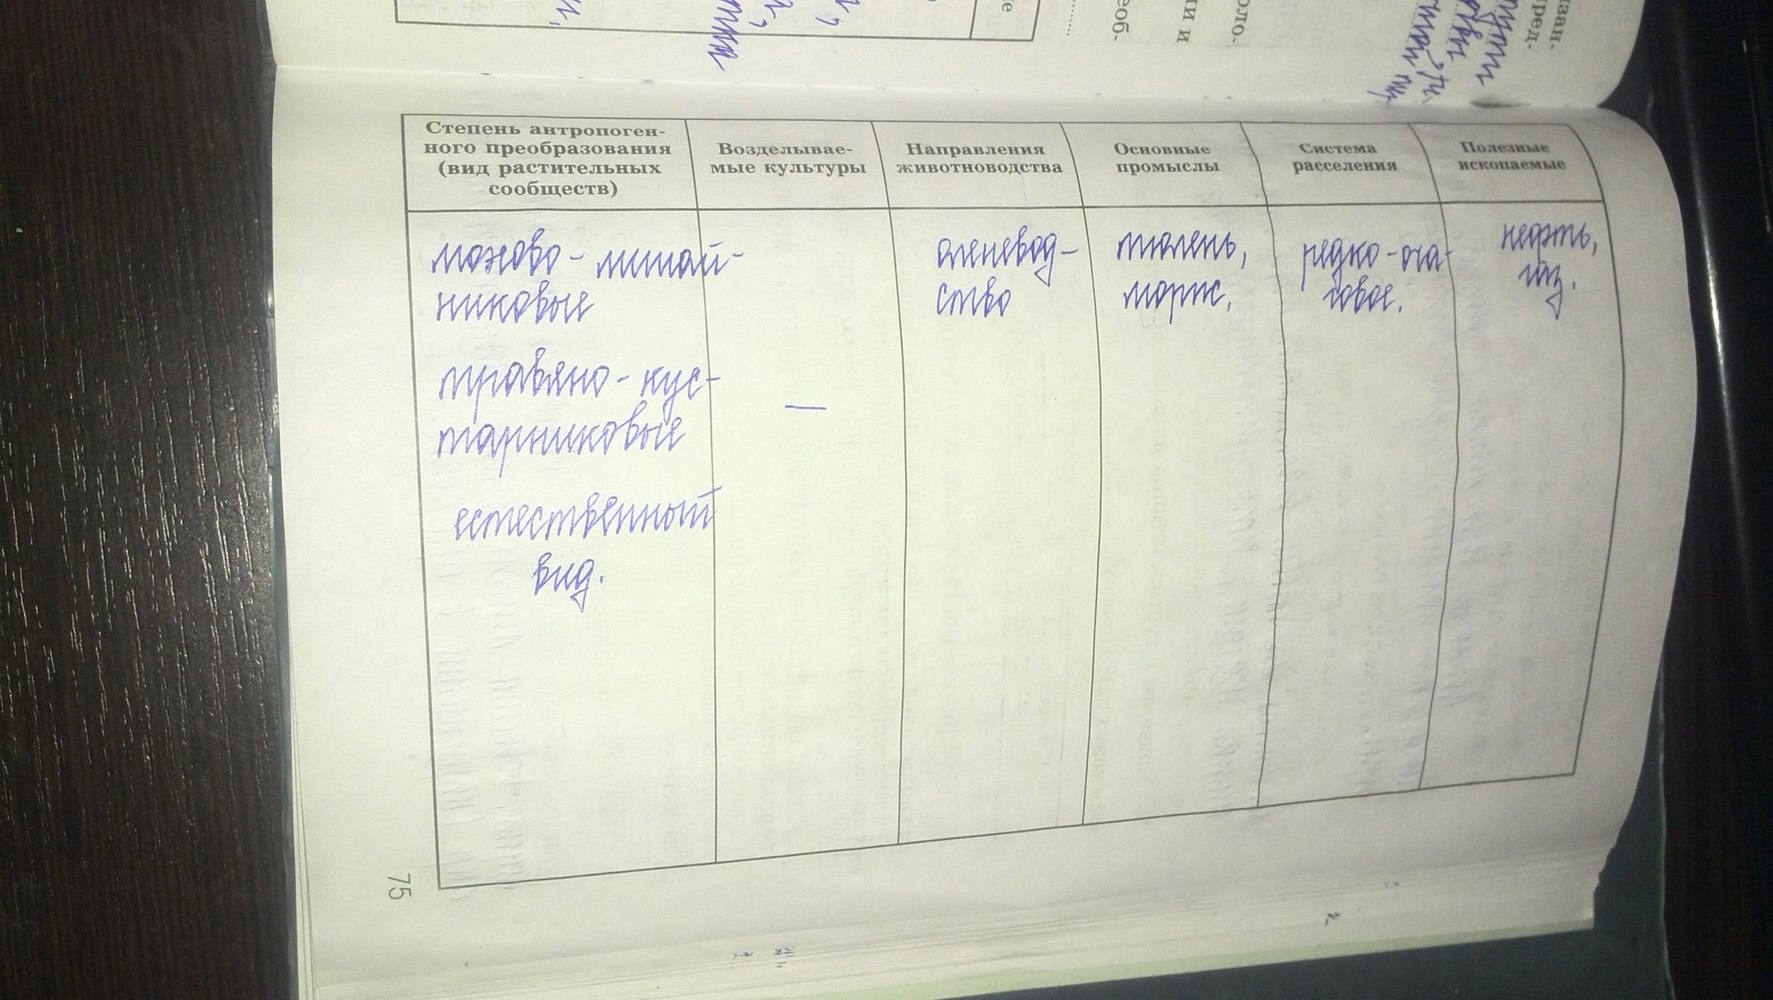 Степень антропоген-
ного преобразования
(вид растительных
сообществ)
Возделывае-
мые культуры
Направления
животноводства
Основные
промыслы
Система
расселения
Полезные
ископаемые
мохово-лишай-
никовые
травяно-кус-
тарниковые
естественный
вид.
—
оленевод-
ство
тюлень,
морж.
редко-оча-
говое.
нефть,
газ.
75
зан-
ред-
оло-
ии и
еоб-
е